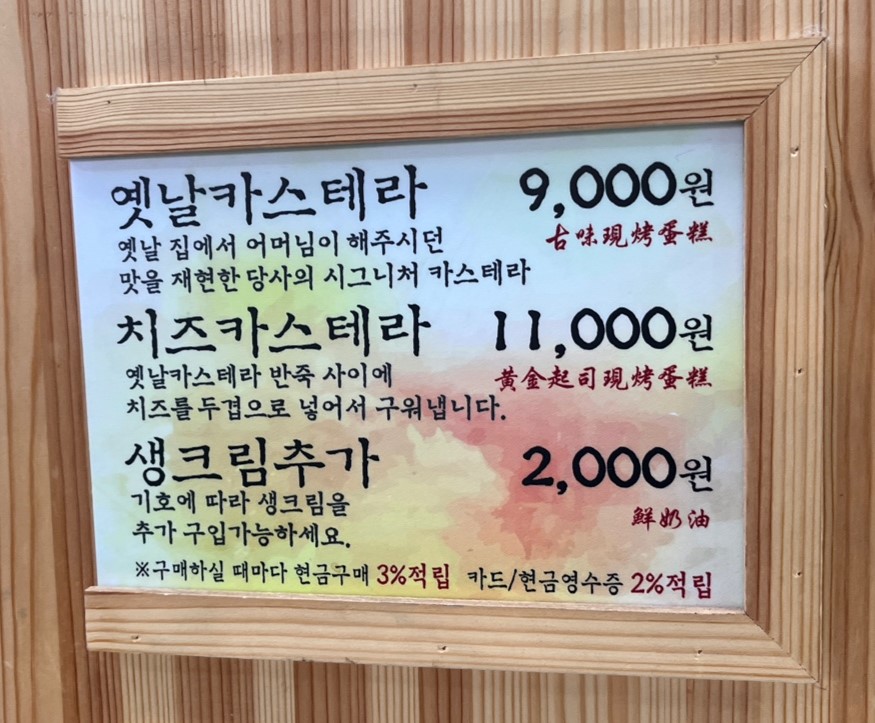 옛날카스테라 9,000원
古味現烤蛋糕
옛날 집에서 어머님이 해주시던
맛을 재현한 당사의 시그니처 카스테라
치즈카스테라 11,000원
黃金起司現烤蛋糕
옛날카스테라 반죽 사이에
치즈를 두겹으로 넣어서 구워냅니다.
생크림추가 2,000원
鮮奶油
기호에 따라 생크림을
추가 구입가능하세요.
※구매하실 때마다 현금구매 3%적립 카드/현금영수증 2%적립